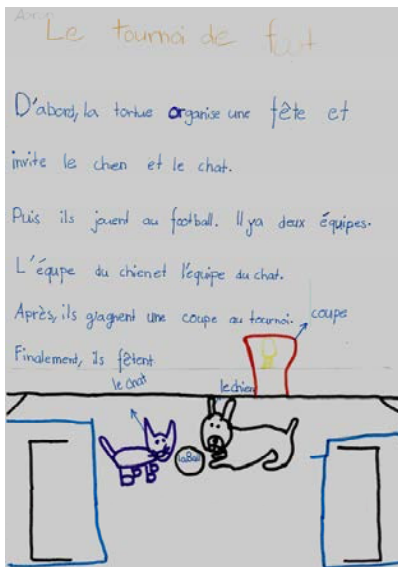 Aaron
Le tournoi de fut
D'abord, la tortue organise une fête et
invite le chien et le chat.
Puis ils jouent au football. Il ya deux équipes.
L'équpe du chien et l'équipe du chat.
Après, ils gagnent une coupe au tournoi. coupe
Finalement, ils fêtent
le chat
le chien